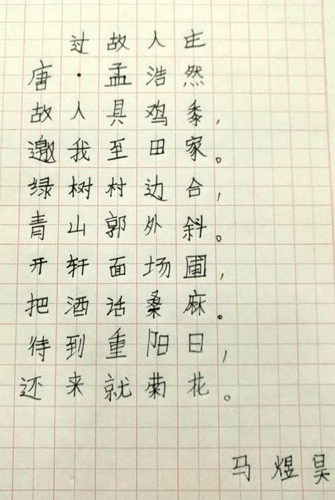 过故人庄
唐·孟浩然
故人具鸡黍,
邀我至田家。
绿树村边合,
青山郭外斜。
开轩面场圃,
把酒话桑麻。
待到重阳日,
还来就菊花。
马煜昊